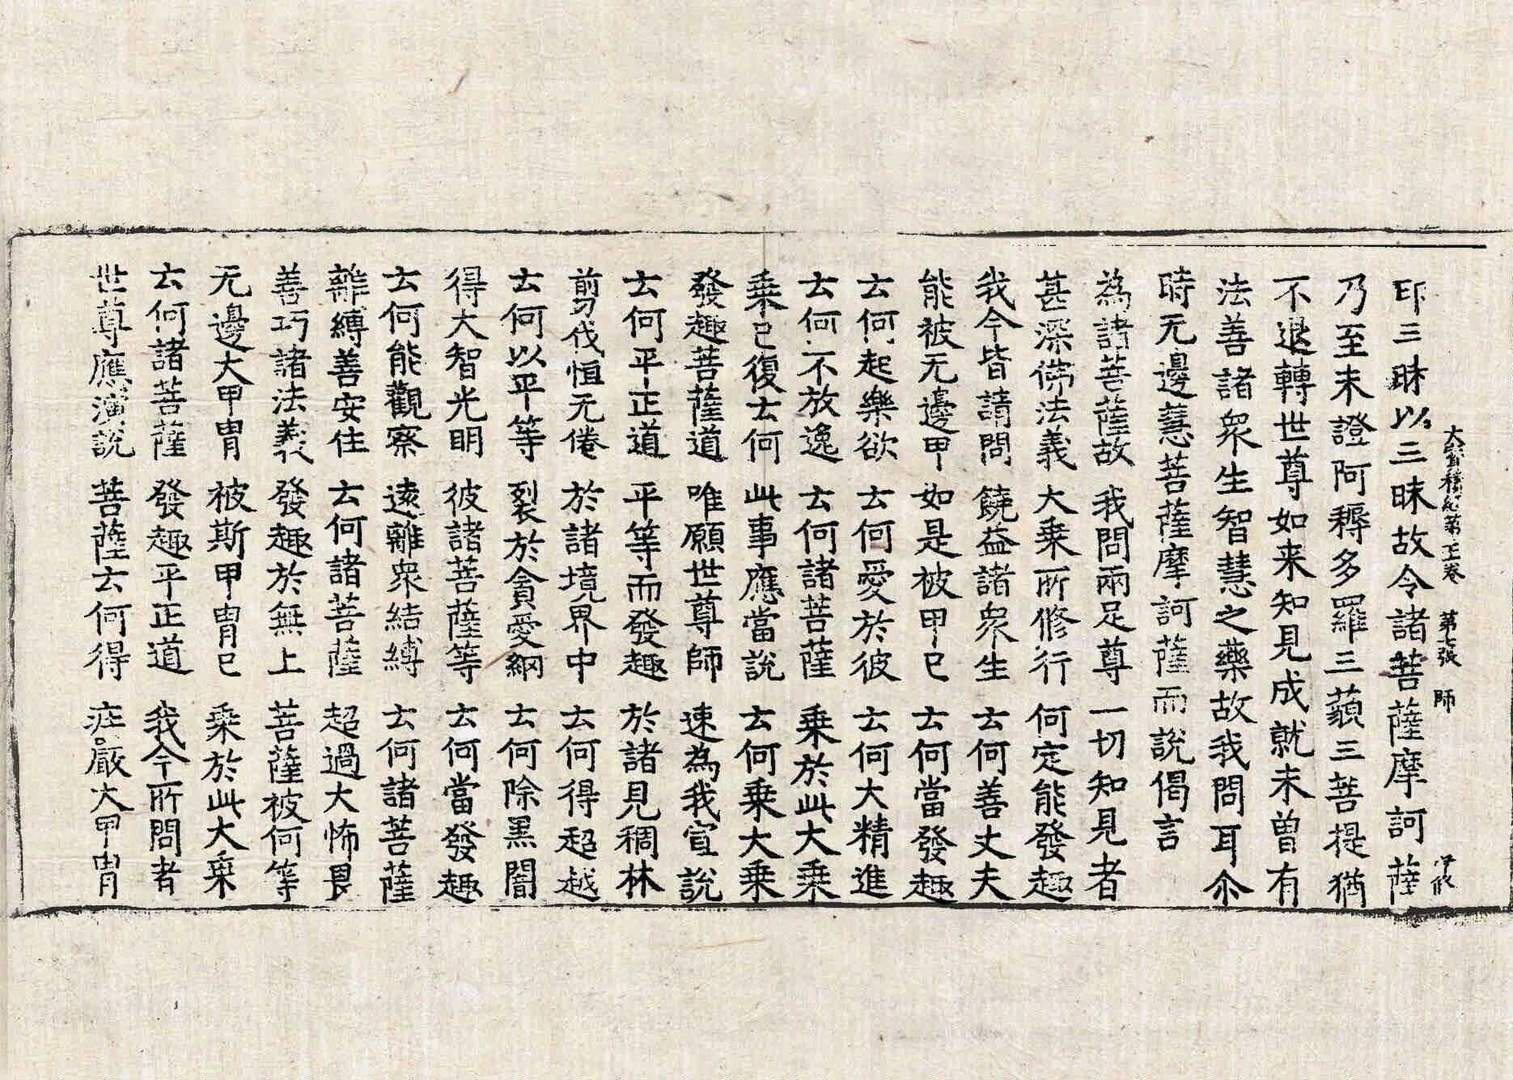 大寶積經第二十二卷 第七張 師
印三昧以三昧故令諸菩薩摩訶薩
乃至未證阿耨多羅三藐三菩提猶
不退轉世尊如来知見成就未曾有
法善諸衆生智慧之藥故我問耳尒
時无邊慧菩薩摩訶薩而說偈言
為諸菩薩故 我問兩足尊 一切知見者
甚深佛法義 大乗所修行 何定能發趣
我今皆請問 饒益諸衆生 云何善丈夫
能被无邊甲 如是被甲已 云何當發趣
云何起樂欲 云何愛於彼 云何大精進
云何不放逸 云何諸菩薩 乗於此大乗
乗已復云何 此事應當說 云何乗大乗
發趣菩薩道 唯願世尊師 速為我宣說
云何平正道 平等而發趣 於諸見稠林
剪伐恒无倦 於諸境界中 云何得超越
云何以平等 裂於貪愛網 云何除黑闇
得大智光明 彼諸菩薩等 云何當發趣
云何能觀察 遠離衆結縛 云何諸菩薩
離縛善安住 云何諸菩薩 超過大怖畏
善巧諸法義 發趣於無上 菩薩被何等
无邊大甲冑 被斯甲冑已 乗於此大乗
云何諸菩薩 發趣平正道 我今所問者
世尊應演說 菩薩云何得 庄嚴大甲冑